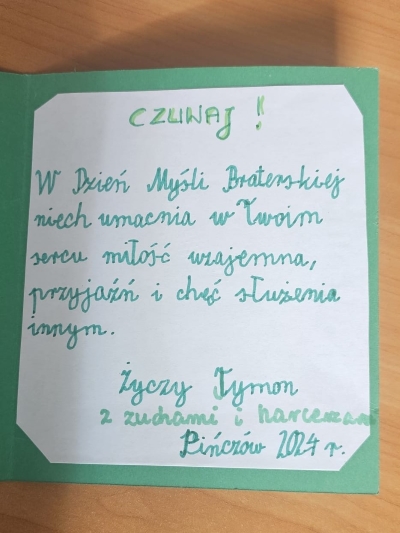 CZUWAJ!
W Dzień Myśli Braterskiej
niech umacnia w Twoim
sercu miłość wzajemna,
przyjaźń i chęć służenia
innym.
Życzy Tymon
z zuchami i harcerzami
Pińczów 2024 r.